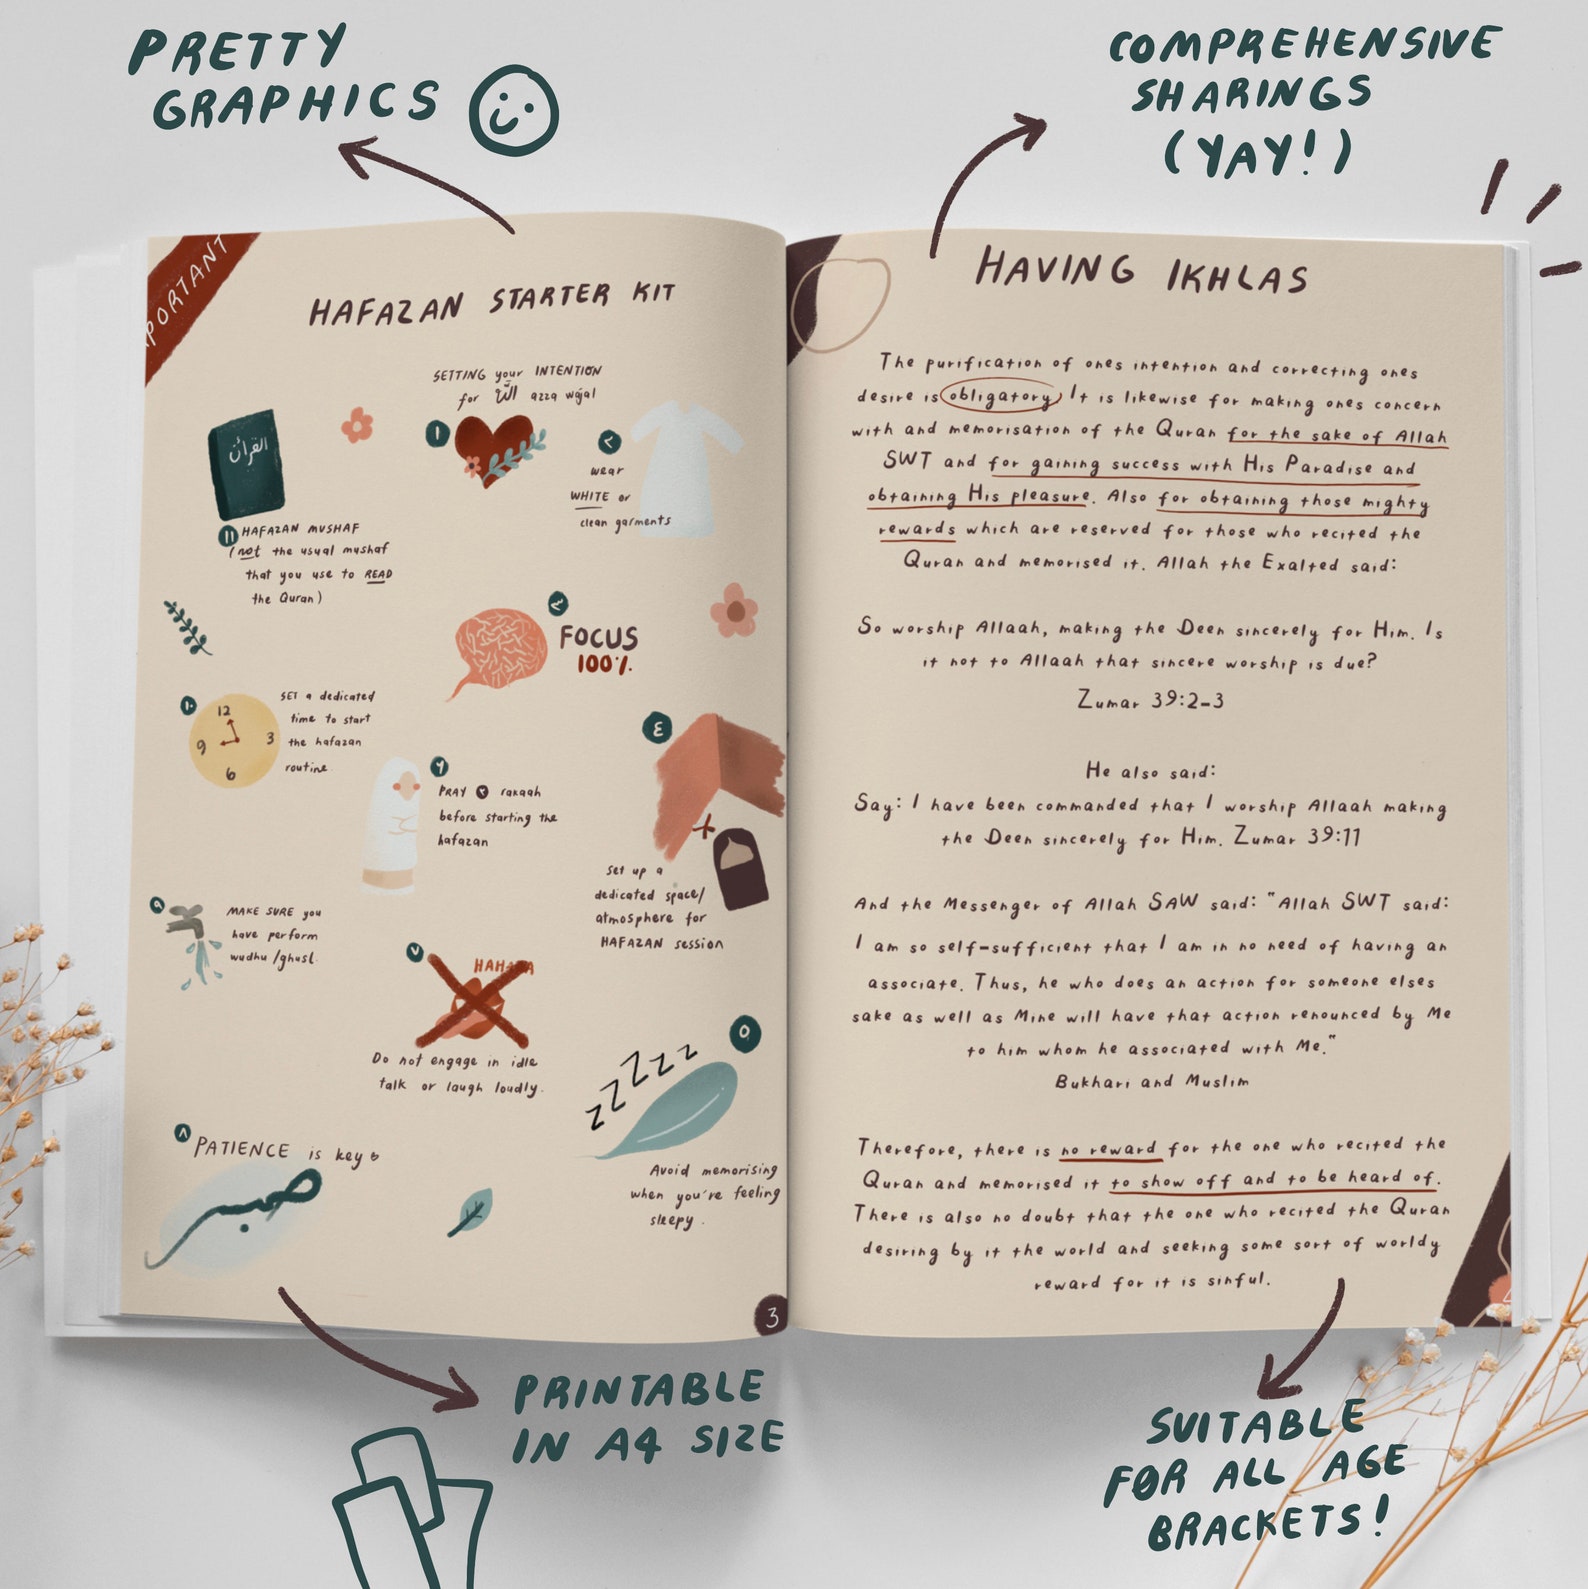 PRETTY
GRAPHICS
COMPREHENSIVE
SHARINGS
(YAY!)
PORTANT
HAFAZAN STARTER KIT
SETTING your INTENTION
for اللّٰه azza wajal
١
القرآن
١١ HAFAZAN MUSHAF
(not the usual mushaf
that you use to READ
the Quran)
٢
wear
WHITE or
clean garments
٣
FOCUS
100%
١٠
12
3
6
9
SET a dedicated
time to start
the hafazan
routine.
٤
set up a
dedicated space/
atmosphere for
HAFAZAN session
٦
PRAY ٢ rakaah
before starting the
hafazan
٩
MAKE SURE you
have perform
wudhu /ghusl.
٧
Do not engage in idle
talk or laugh loudly.
٥
ZZZZZZ
Avoid memorising
when you're feeling
sleepy.
٨
PATIENCE is key
صبر
3
HAVING IKHLAS
The purification of ones intention and correcting ones
desire is obligatory. It is likewise for making ones concern
with and memorisation of the Quran for the sake of Allah
SWT and for gaining success with His Paradise and
obtaining His pleasure. Also for obtaining those mighty
rewards which are reserved for those who recited the
Quran and memorised it. Allah the Exalted said:
So worship Allaah, making the Deen sincerely for Him. Is
it not to Allaah that sincere worship is due?
Zumar 39:2-3
He also said:
Say: I have been commanded that I worship Allaah making
the Deen sincerely for Him. Zumar 39:11
And the Messenger of Allah SAW said: "Allah SWT said:
I am so self-sufficient that I am in no need of having an
associate. Thus, he who does an action for someone elses
sake as well as Mine will have that action renounced by Me
to him whom he associated with Me."
Bukhari and Muslim
Therefore, there is no reward for the one who recited the
Quran and memorised it to show off and to be heard of.
There is also no doubt that the one who recited the Quran
desiring by it the world and seeking some sort of worldy
reward for it is sinful.
PRINTABLE
IN A4 SIZE
SUITABLE
FOR ALL AGE
BRACKETS!